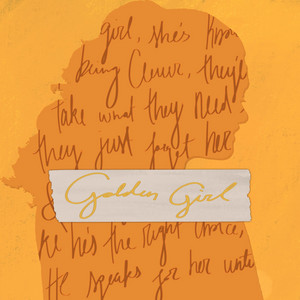 girl, she's know
being Clever, they'
take what they Need
they just forget her
Golden Girl
he's the right choice,
He speaks for her unti